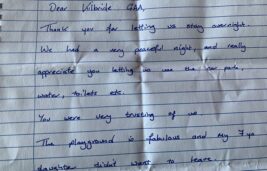 Dear Kilbride GAA,
Thank you for letting us stay overnight.
We had a very peaceful night, and really
appreciate you letting us use the car park
water, toilets etc.
You were very trusting of us.
The playground is fabulous and my 7 yo
daughter didn't want to leave.